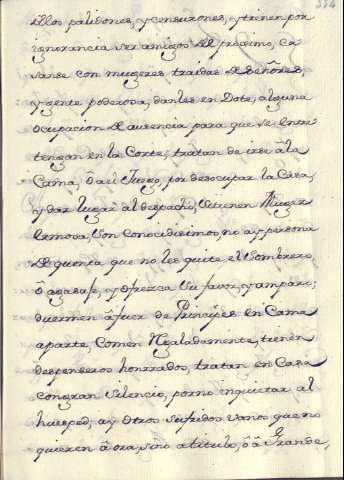 334
Dellos palidones, y censurones, y tienen por
ignorancia ser amigos del proximo, ca
sanse con mugeres traidas de Señores,
y gente poderosa, danles en Dote, alguna
ocupacion de ausencia para que se entre
tengan en la Corte, tratan de irse â la
Cama, ô a el Juego, por desocupar la Casa,
y dar lugar al despacho, si tienen Muger
hermosa, son conocidissimos, no ay persona
de quenta que no les quite el sombrero,
ô agasaje, y ofrezca su favor, y amparo;
duermen â fuer de Principes en Cama
aparte, Comen Regaladamente, tienen
despenseros honrrados, tratan en Casa
con gran silencio, por no inquietar al
huesped, ay otros sufridos vanos que no
quieren â ora, sino a titulo, ô â Grande,